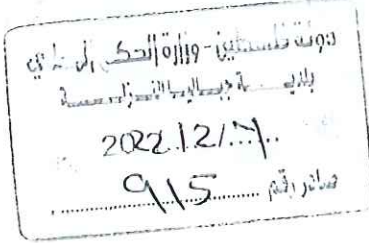 دولة فلسطين - وزارة الحكم المحلي
بلدية جباليا النزلة
2022.12/
صادر رقم 915